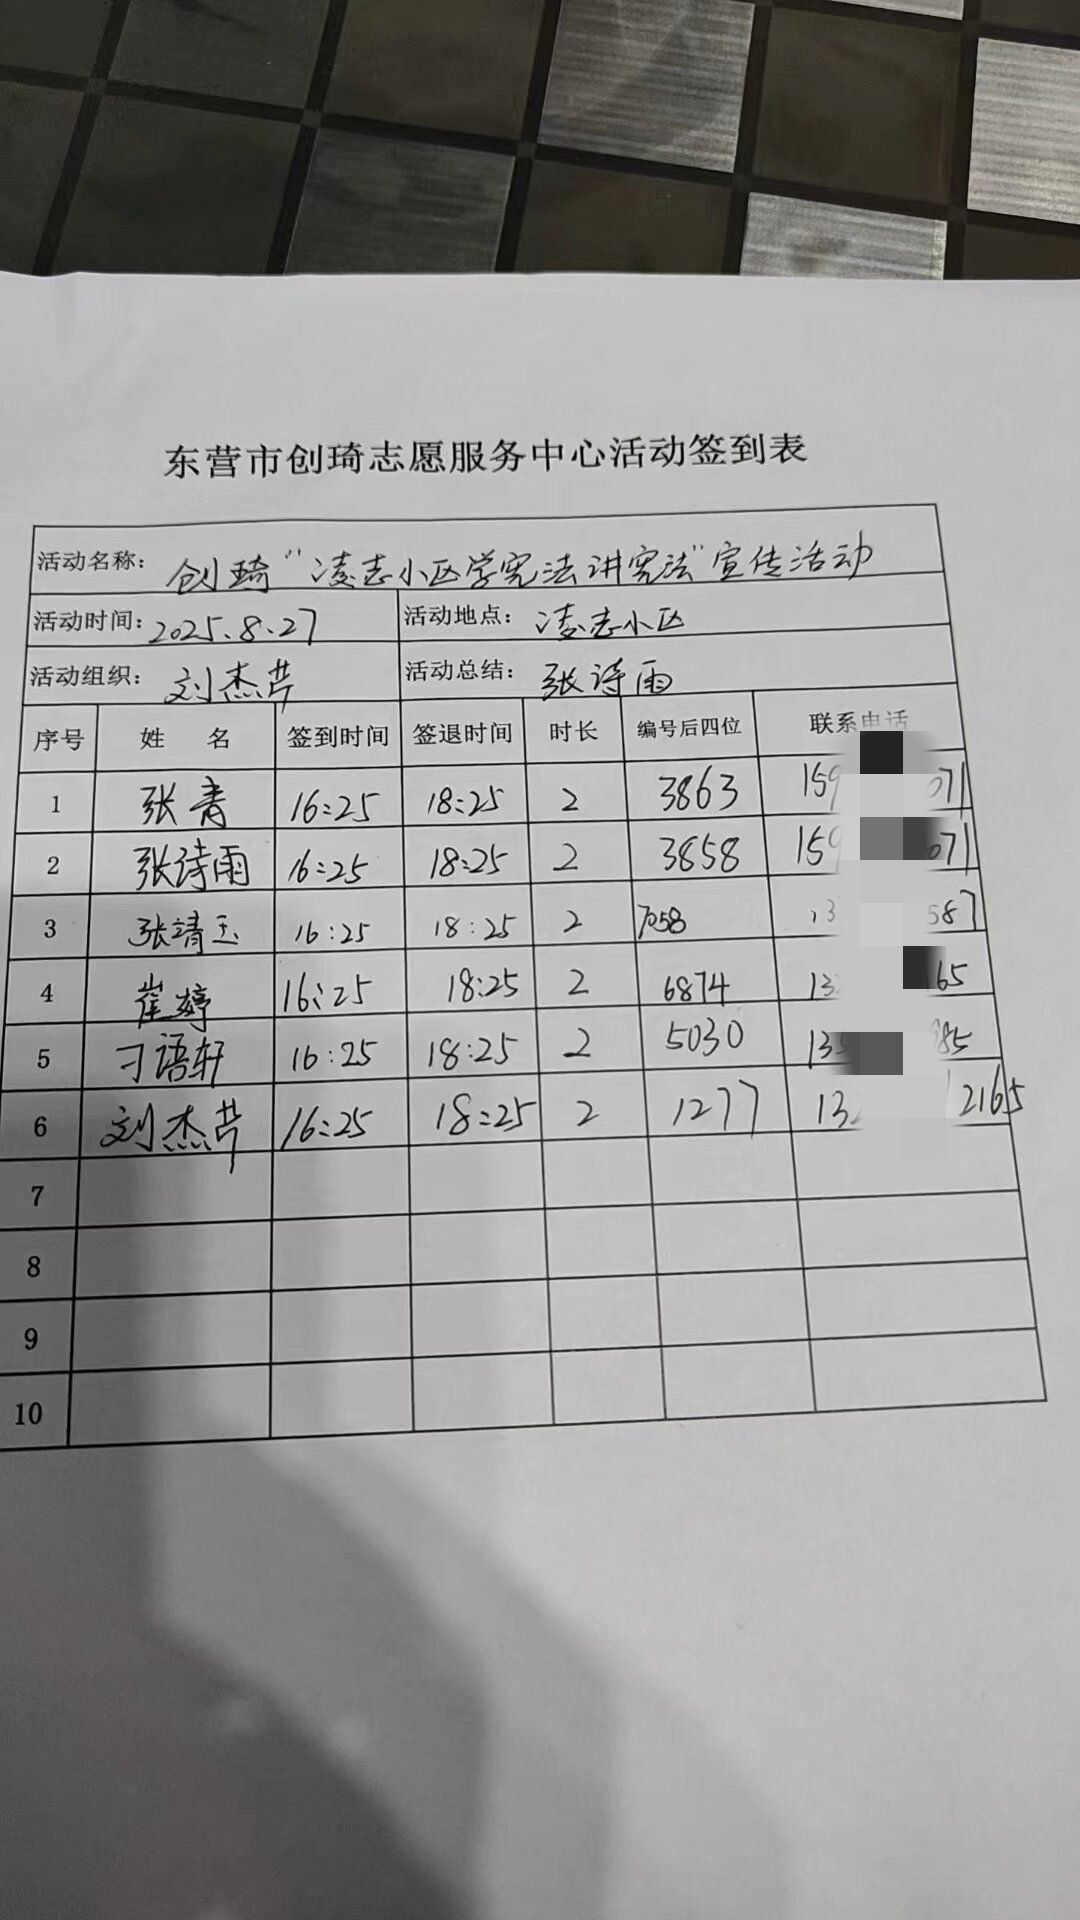 东营市创琦志愿服务中心活动签到表
活动名称： 创琦“凌志小区学宪法讲宪法”宣传活动
活动时间：2025.8.27 活动地点： 凌志小区
活动组织： 刘杰芹 活动总结： 张诗雨
序号 姓 名 签到时间 签退时间 时长 编号后四位 联系电话
1 张青 16:25 18:25 2 3863 159 071
2 张诗雨 16:25 18:25 2 3858 159 071
3 张靖玉 16:25 18:25 2 7058 13 587
4 崔婷 16:25 18:25 2 6874 13 165
5 刁语轩 16:25 18:25 2 5030 135 985
6 刘杰芹 16:25 18:25 2 1277 132 2165
7
8
9
10